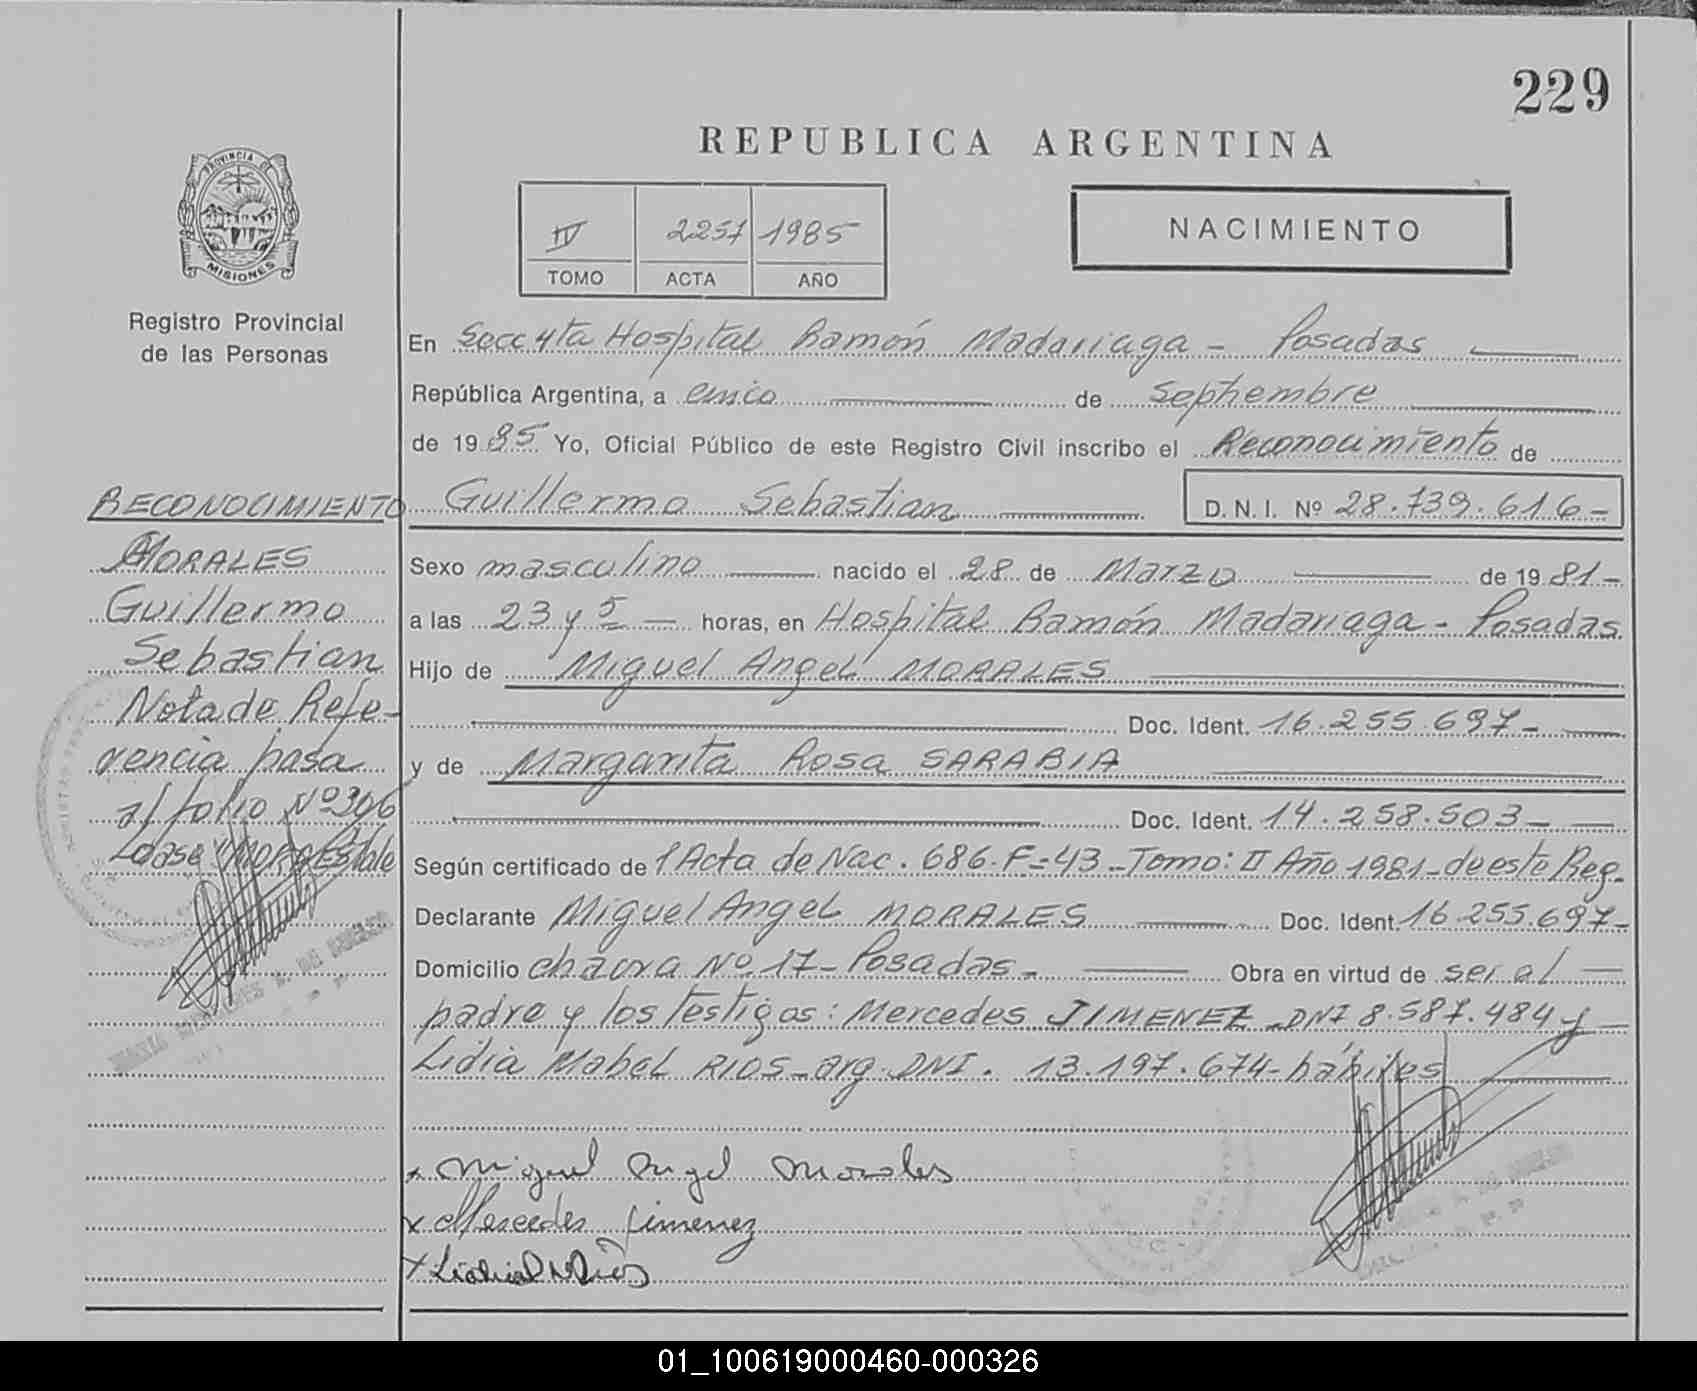 229
REPUBLICA ARGENTINA
PROVINCIA DE
MISIONES
Registro Provincial
de las Personas
IV 2257 1985
TOMO ACTA AÑO
NACIMIENTO
En Secc 4ta Hospital Ramón Madariaga - Posadas
República Argentina, a cinco de Septiembre
de 19 85 Yo, Oficial Público de este Registro Civil inscribo el Reconocimiento de
Guillermo Sebastian D. N. I. Nº 28.739.616-
Sexo masculino nacido el 28 de Marzo de 19 81-
a las 23 y 5 horas, en Hospital Ramón Madariaga - Posadas
Hijo de Miguel Angel MORALES
Doc. Ident. 16.255.697-
y de Margarita Rosa SARABIA
Doc. Ident. 14.258.503-
Según certificado de Acta de Nac. 686-F=43-Tomo: II Año 1981-de este Reg.
Declarante Miguel Angel MORALES Doc. Ident. 16.255.697-
Domicilio chacra Nº 17- Posadas- Obra en virtud de ser al
padre y los testigos: Mercedes JIMENEZ DNI 8.587.484 y
Lidia Mabel RIOS-arg. DNI. 13.197.674-hábiles
Miguel Angel Morales
Mercedes Jimenez
RECONOCIMIENTO
MORALES
Guillermo
Sebastian
Nota de Refe-
rencia pasa
al folio Nº 306
01_100619000460-000326